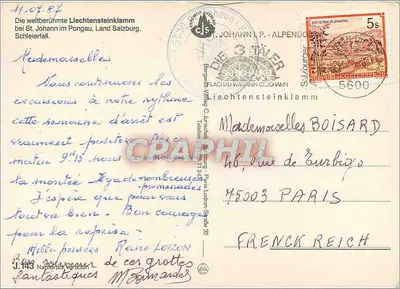 11.07.87
Die weltberühmte Liechtensteinklamm
bei St. Johann im Pongau, Land Salzburg.
Schleierfall.
Mesdemoiselles
Nous continuons les
excursions à notre rythme
cette semaine d'arrêt est
vraiment positive. Ce
matin 9h15 nous
la montée. Il y a de nombreuses
promenades
J'espère que pour vous
tout va bien. Bon courage
pour la reprise.
Mille pensées Reine LOIZON
Bon souvenir de ces grottes
fantastiques
J.143
ST. JOHANN I. P. - ALPENDORF
DIE 3 TÄLER
FLACHAU WAGRAIN ST. JOHANN
Liechtensteinklamm
5600
5s
Mademoiselles BOISARD
46, Rue de Turbigo
75003 PARIS
FRENCK REICH
CPAPHIL